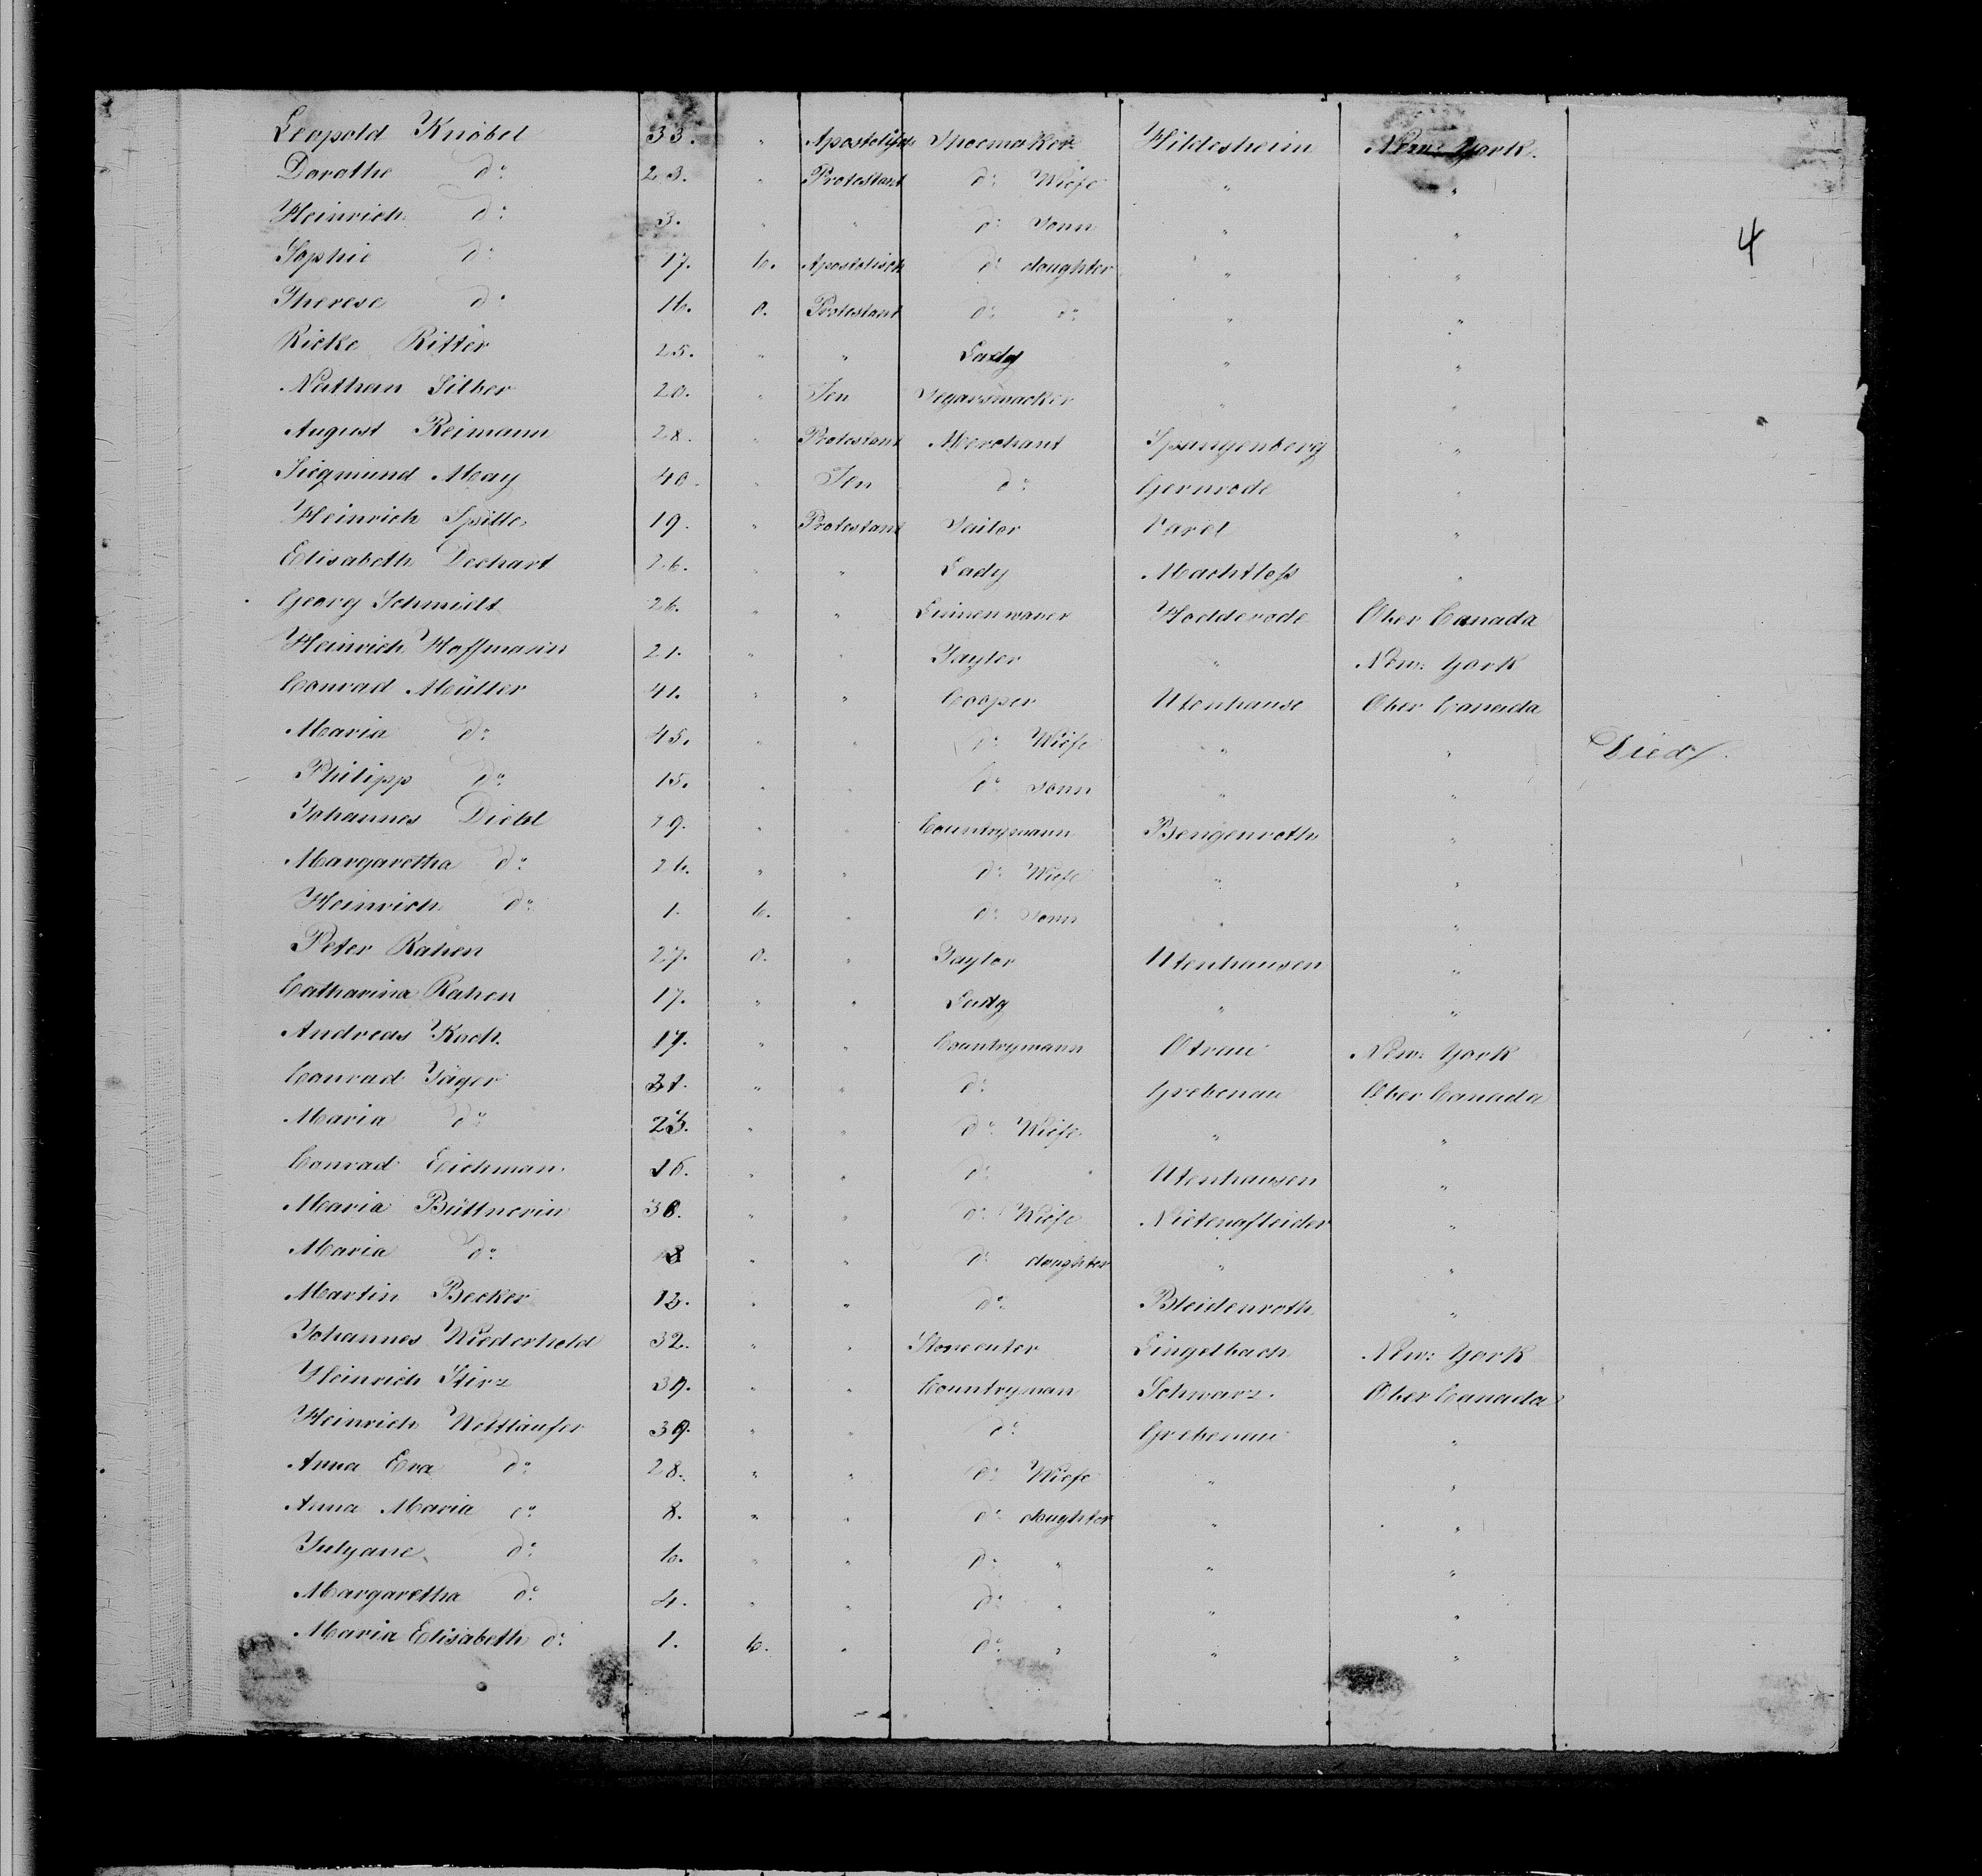 Leopold Knöbel 33. " Apostolisch Shoemaker Hildesheim New York.
Dorathe do 23. " Protestant do Wiefe " "
Heinrich do 3. " " do Sonn " "
Sophie do 17. 6. Apostolisch do daughter " "
Therese do 16. 0. Protestant do do " "
Rieke Ritter 25. " " Lady " "
Nathan Silber 20. " Jew Segarsmacker " "
August Reimann 28. " Protestant Merchant Spangenberg "
Siegmund May 40. " Jew do Gernrode "
Heinrich Spitte 19. " Protestant Sailor Varel "
Elisabeth Dechart 26. " " Lady Machtloss "
Georg Schmidt 26. " " Leinenwaver Hodderode Ober Canada
Heinrich Hoffmann 21. " " Taylor " New York
Conrad Müller 41. " " Cooper Utenhause Ober Canada
Maria do 45. " " do Wiefe " " Died.
Philipp do 15. " " do Sonn " "
Johannes Diebel 29. " " Countrymann Bengenroth "
Margaretha do 26. " " do Wiefe " "
Heinrich do 1. 6. " do Sonn " "
Peter Rahen 27. 0. " Taylor Utenhausen "
Catharina Rahen 17. " " Lady " "
Andreas Koch 17. " " Countrymann Otrau New York
Conrad Jäger 21. " " do Grebenau Ober Canada
Maria do 25. " " do Wiefe " "
Conrad Eichman 16. " " do Utenhausen "
Maria Büttnerin 38. " " do Wiefe "
Maria do 8 " " do daughter " "
Martin Becker 12. " " do Bleidenroth "
Johannes Wiederhold 32. " " Stonecuter Lingelbach New York
Heinrich Stirz 39. " " Countryman Schwarz. Ober Canada
Heinrich Wettläufer 39. " " do Grebenau "
Anna Eva do 28. " " do Wiefe " "
Anna Maria do 8. " " do daughter " "
Julyane do 6. " " do " " "
Margaretha do 4. " " do " " "
Maria Elisabeth do 1. 6. " do " " "
4